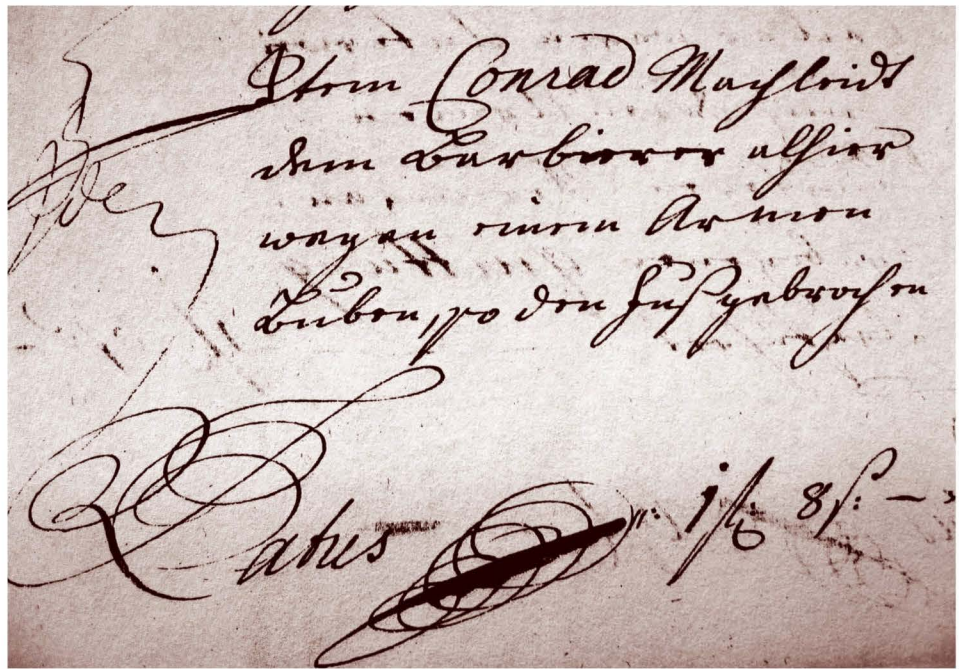 Item Conrad Machleidt
dem Barbierer alhier
wegen einem Armen
Buben, so den Fuß gebrochen
Latus
1 fl: 8 ß: –